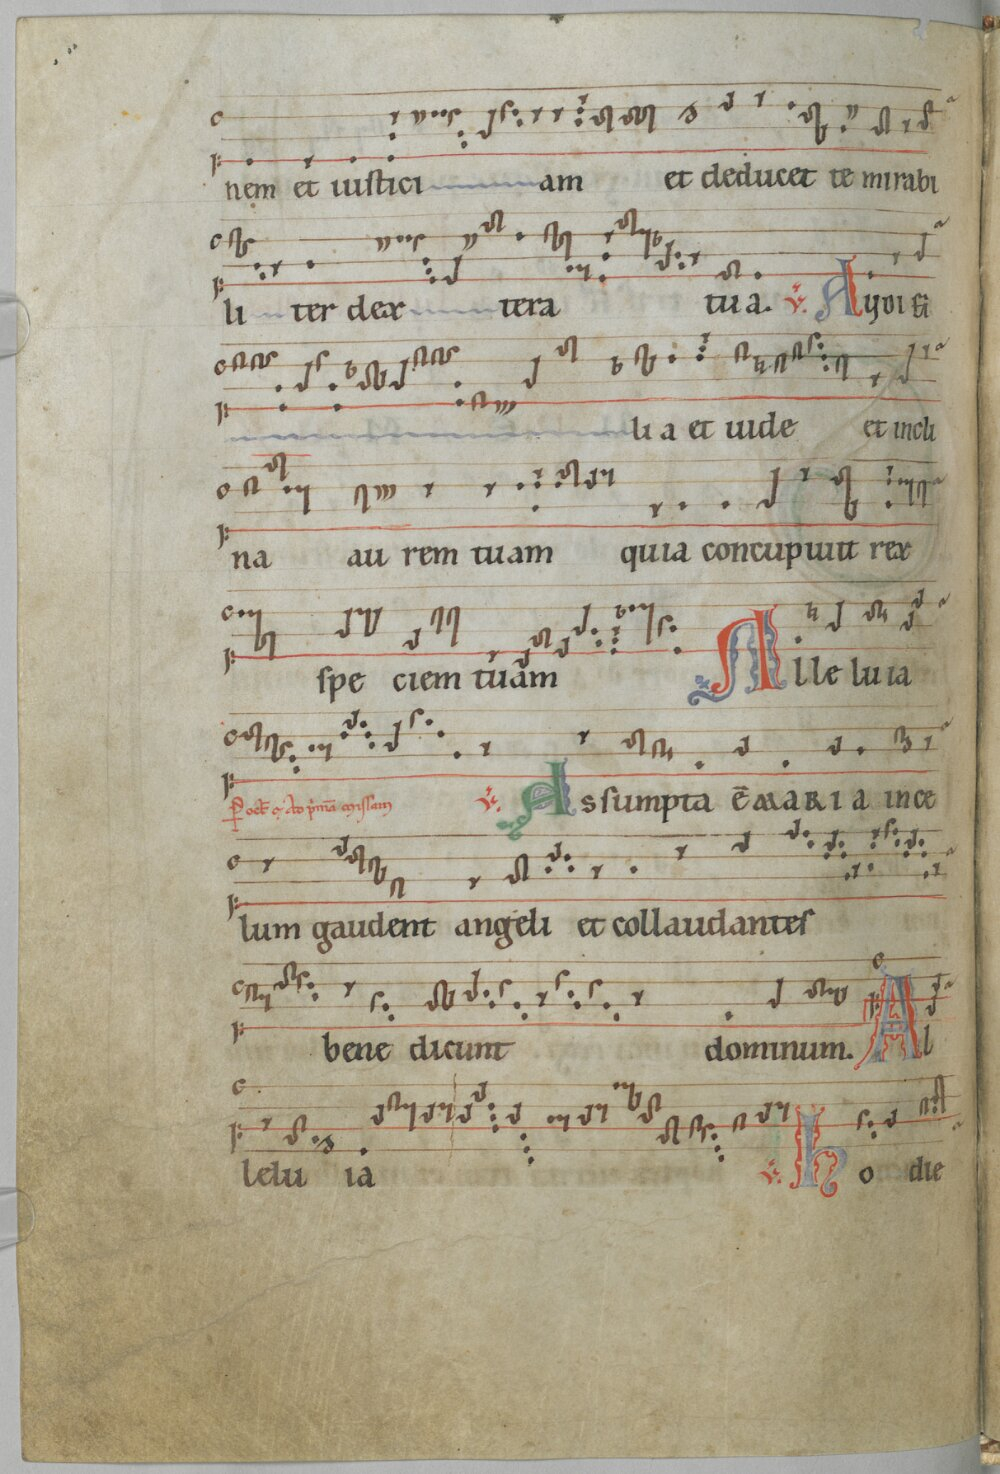 nem et iusticiam et deducet te mirabi
li ter dex tera tua. V. Audi fi
li a et uide et incli
na au rem tuam quia concupiuit rex
spe ciem tuam Alle luia
V. Assumpta ē MARIA in ce
lum gaudent angeli et collaudantes
bene dicunt dominum. Al
lelu ia V. Ho die